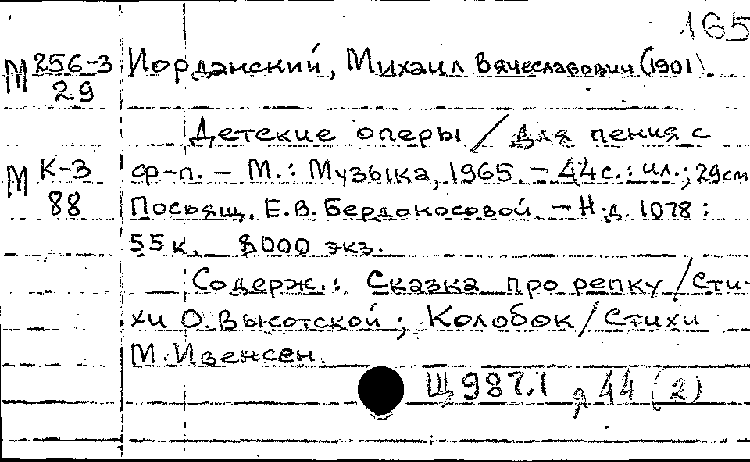 165
М 256-3 Иорданский, Михаил Вячеславович (1901).
29
Детские оперы / Для пения с
М К-3 ф-п. – М.: Музыка, 1965. – 44 с.: ил.; 29 см
88 Посвящ. Е.В. – Н.д. 1078:
55 к. 8000 экз.
Содерж.: Сказка про репку / Сти-
хи О. Высотской; Колобок / Стихи
М. Ивенсен.
Щ 987.1 я 44 (2)